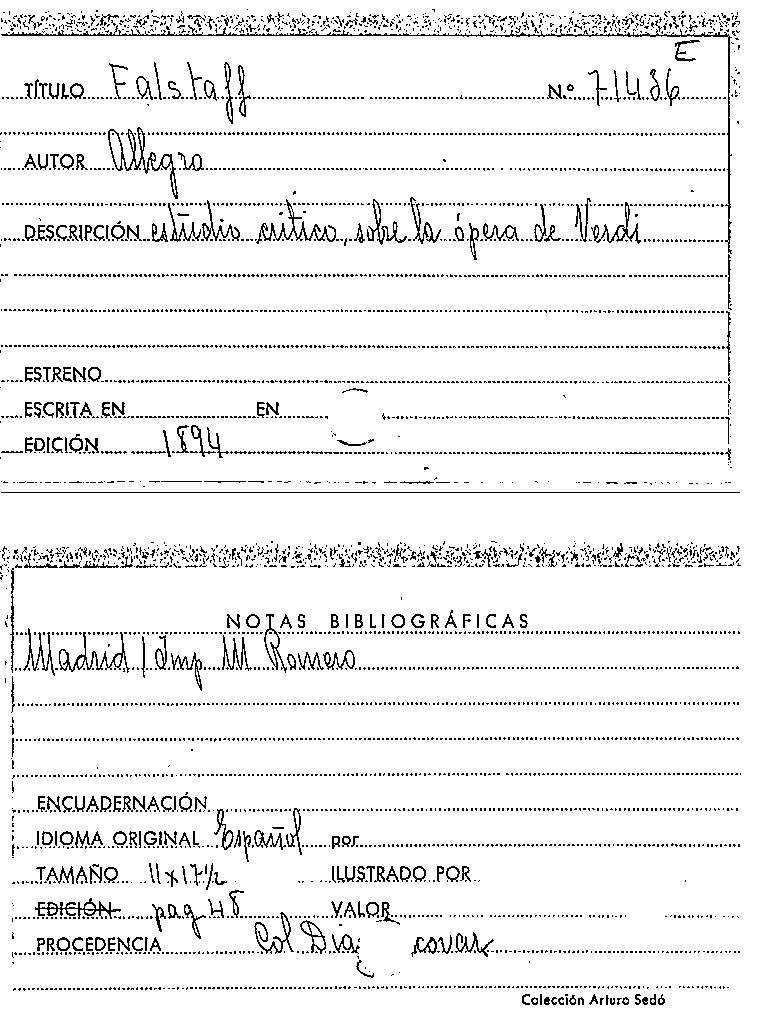 E
TÍTULO Falstaff N.º 71486
AUTOR Allegro
DESCRIPCIÓN estudio critico, sobre la ópera de Verdi
ESTRENO
ESCRITA EN EN
EDICIÓN 1894
NOTAS BIBLIOGRÁFICAS
Madrid / Imp M Romero
ENCUADERNACIÓN
IDIOMA ORIGINAL Español por
TAMAÑO 11x17½ ILUSTRADO POR
EDICIÓN pag 48 VALOR
PROCEDENCIA Col Dia covar
Colección Arturo Sedó